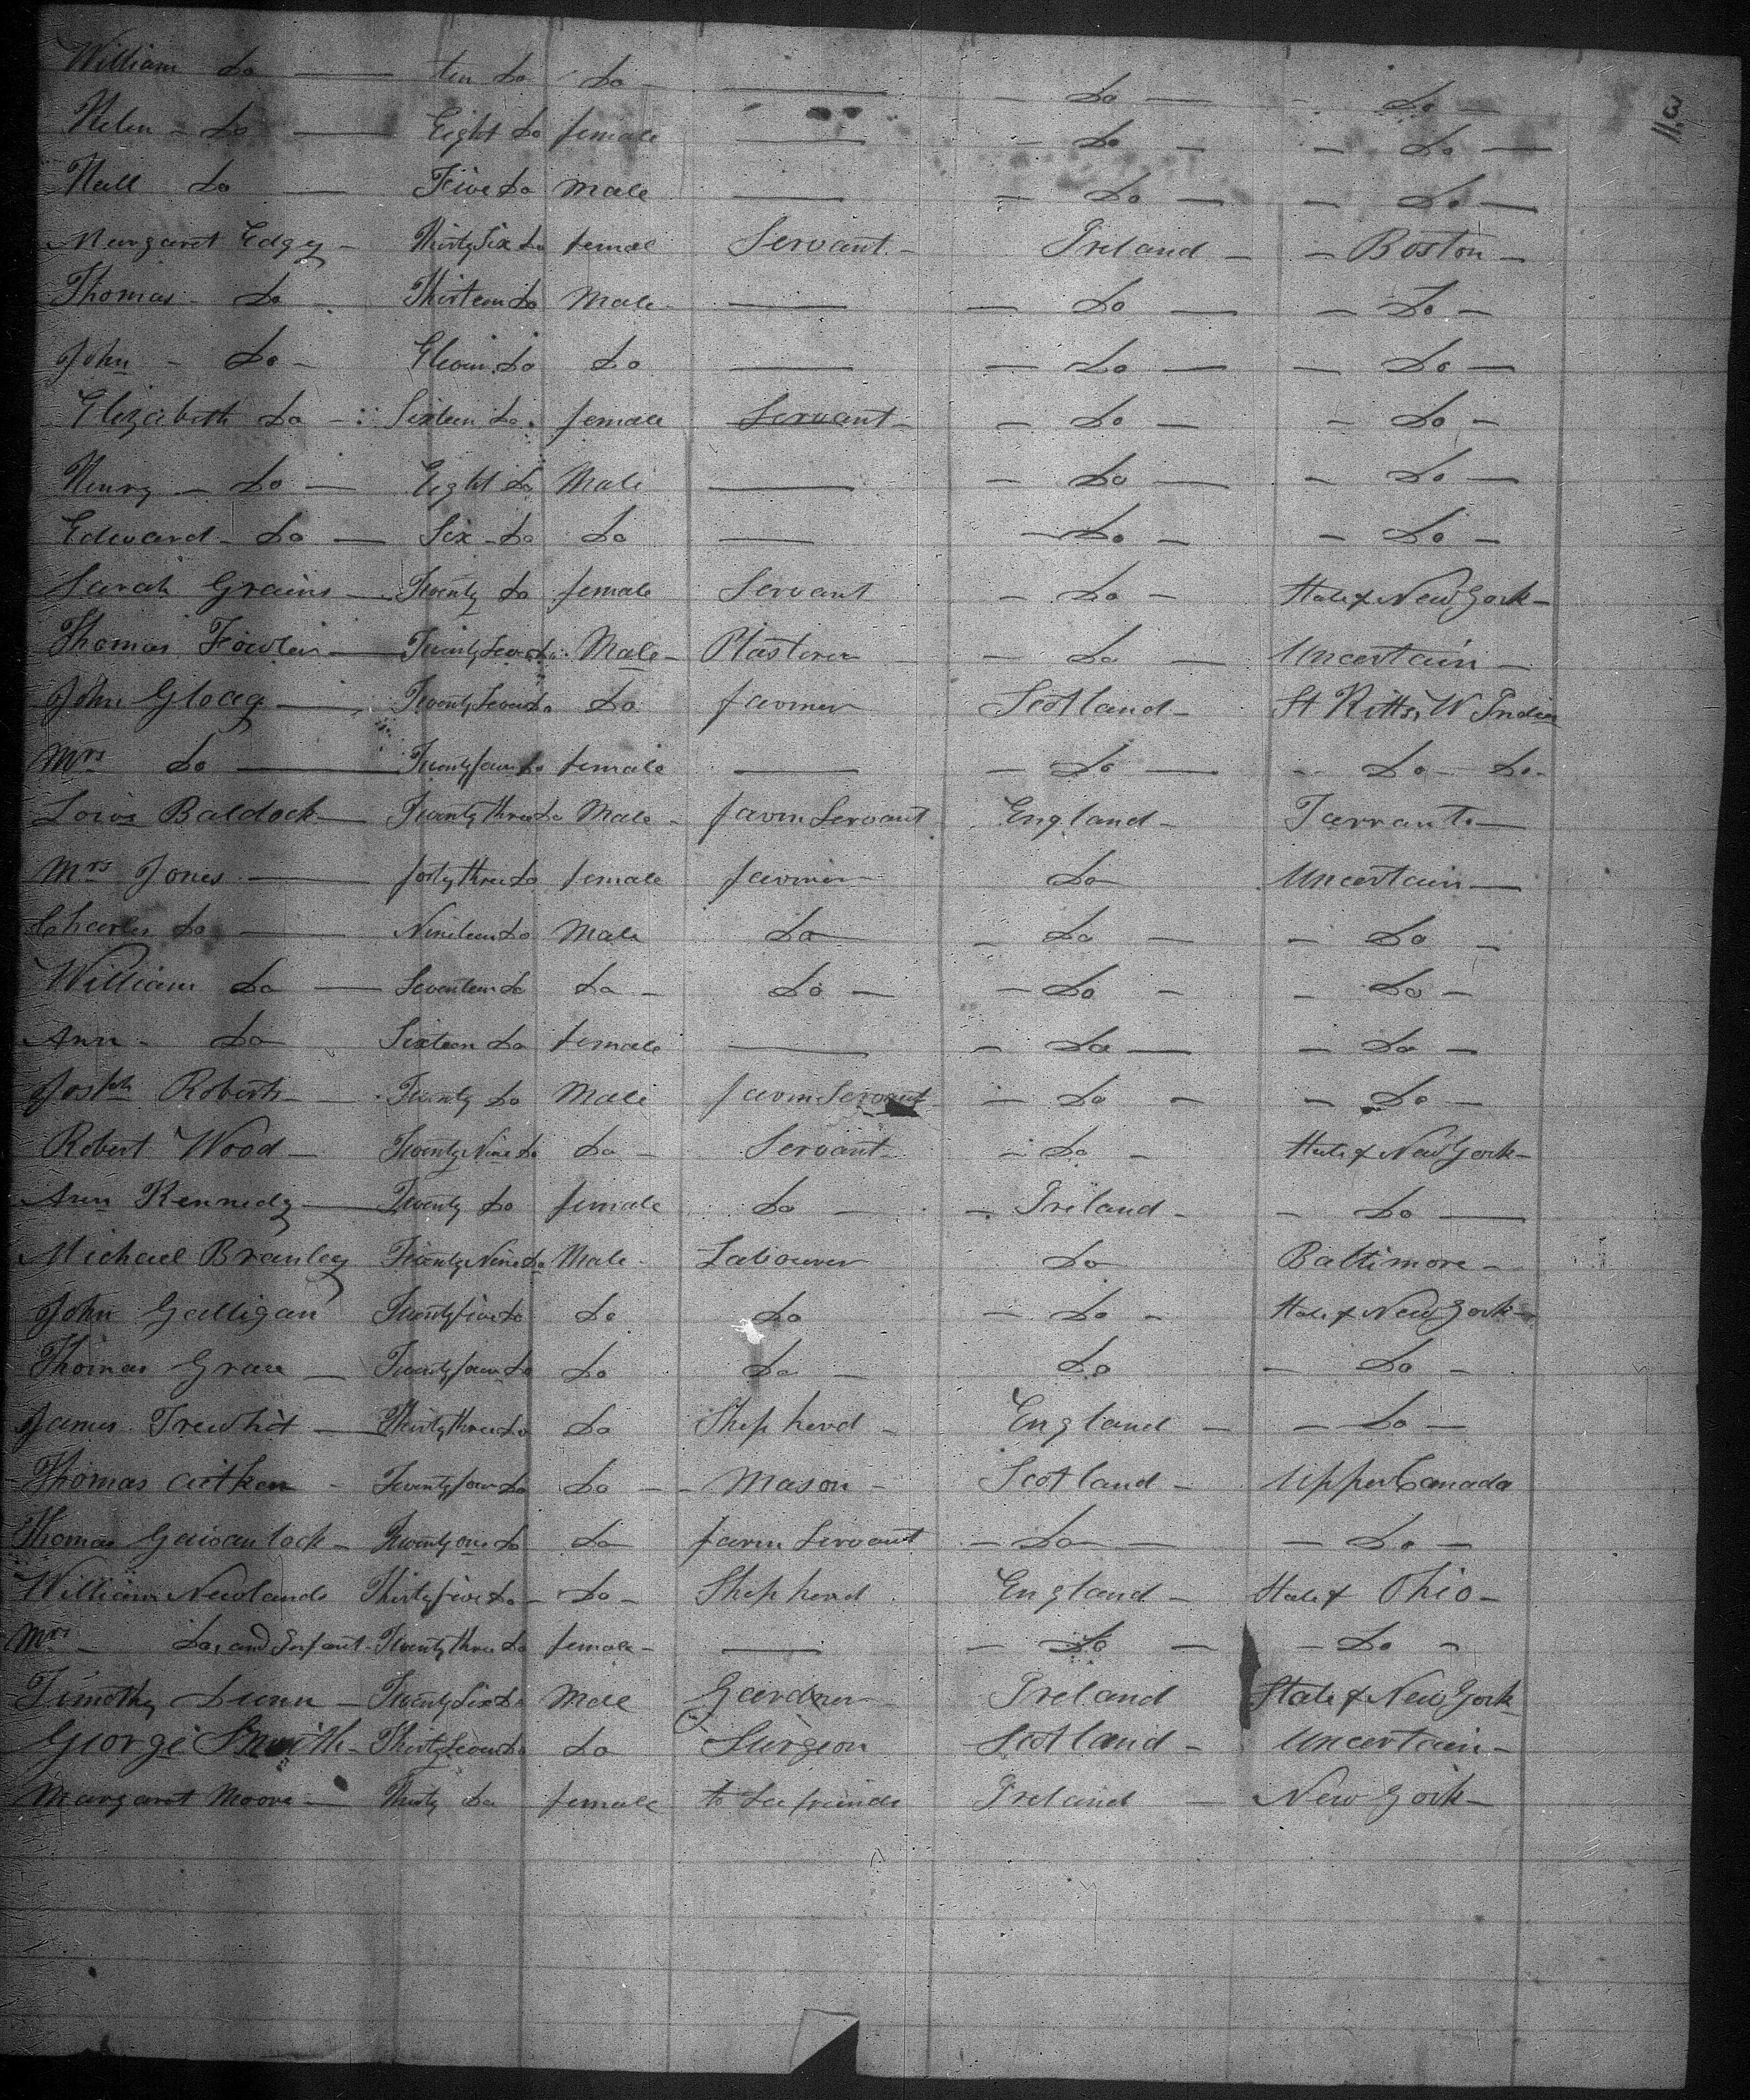 113
William Do — ten Do Do — — Do — — Do —
Helen - Do — Eight Do female — — Do — — Do —
Neill Do — Five Do Male — — Do — — Do —
Margaret Edgey - Thirty Six Do female Servant - Ireland - - Boston -
Thomas - Do - Thirteen Do Male - — — Do — — Do —
John - Do - Eleven Do Do — — Do — — Do —
Elizabeth Do - Sixteen Do female Servant - — Do — — Do -
Henry - Do — Eight Do Male — — Do — — Do —
Edward - Do — Six - Do Do — — Do — — Do -
Sarah Grains — Twenty Do female Servant - Do - State of New York -
Thomas Fowler — Twenty Seven Do Male - Plasterer — Do — Uncertain -
John Gloag — Twenty Seven Do Do farmer Scotland - St Kitts, W Indies
Mrs Do — Twenty four Do female — — Do — - Do - Do -
Lowis Baldock — Twenty three Do Male - farm Servant England - Tarrant —
Mrs Jones — forty three Do female farmer Do Uncertain —
Charles Do — Nineteen Do Male Do - Do — - Do -
William Do — Seventeen Do Do - Do — - Do - - Do -
Ann - Do Sixteen Do female — - Do — - Do -
Josph Roberts — Twenty Do Male farm Servant - Do - - Do -
Robert Wood - Twenty Nine Do Do - Servant - - Do - State of New York -
Ann Kennedy — Twenty Do female Do — - Ireland - - Do —
Michael Branley Twenty Nine Do Male - Labourer Do Baltimore -
John Galligan Twenty five Do Do Do - Do - State of New York -
Thomas Grace — Twenty four Do Do Do - Do - Do -
James Trewhit — Thirty three Do Do Shepherd - England - - Do -
Thomas Aitken - Twenty four Do Do - - Mason - Scotland - Upper Canada
Thomas Gavanlock - Twenty one Do Do farm Servant - Do — - Do -
William Newlands Thirty five Do - Do - Shepherd England - State of Ohio -
Mrs - Do, and Infant - Twenty three Do female - — - Do - - Do -
Timothy Dunn — Twenty Six Do Male Gardner Ireland State of New York
George Smith - Thirty Seven Do Do Surgeon Scotland - Uncertain -
Margaret Moore — Thirty Do female to See friends Ireland — New York -